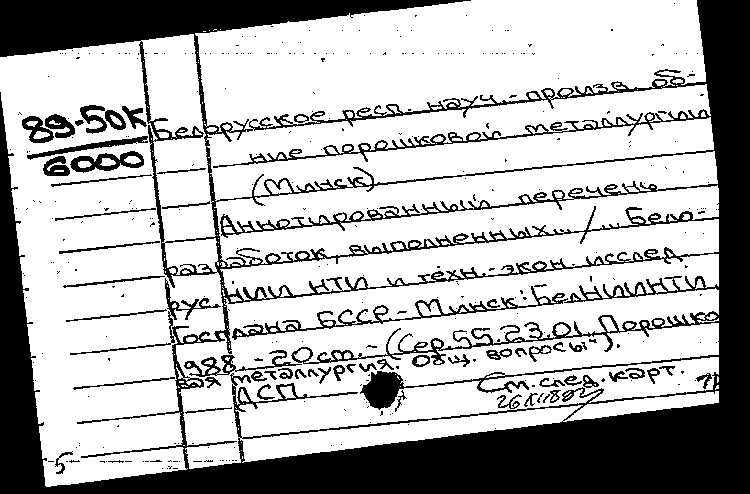 89-50К
6000
Белорусское респ. науч.-произв. об-
ние порошковой металлургии
(Минск)
Аннотированный перечень
разработок, выполненных... / ... Бело-
рус. НИИ НТИ и техн.-экон. исслед.
Госплана БССР - Минск: БелНИИНТИ,
1988. - 20 ст. - (Сер. 55.23.01 „Порошко
вая металлургия. Общ. вопросы").
ДСП.
См. след. карт.
5